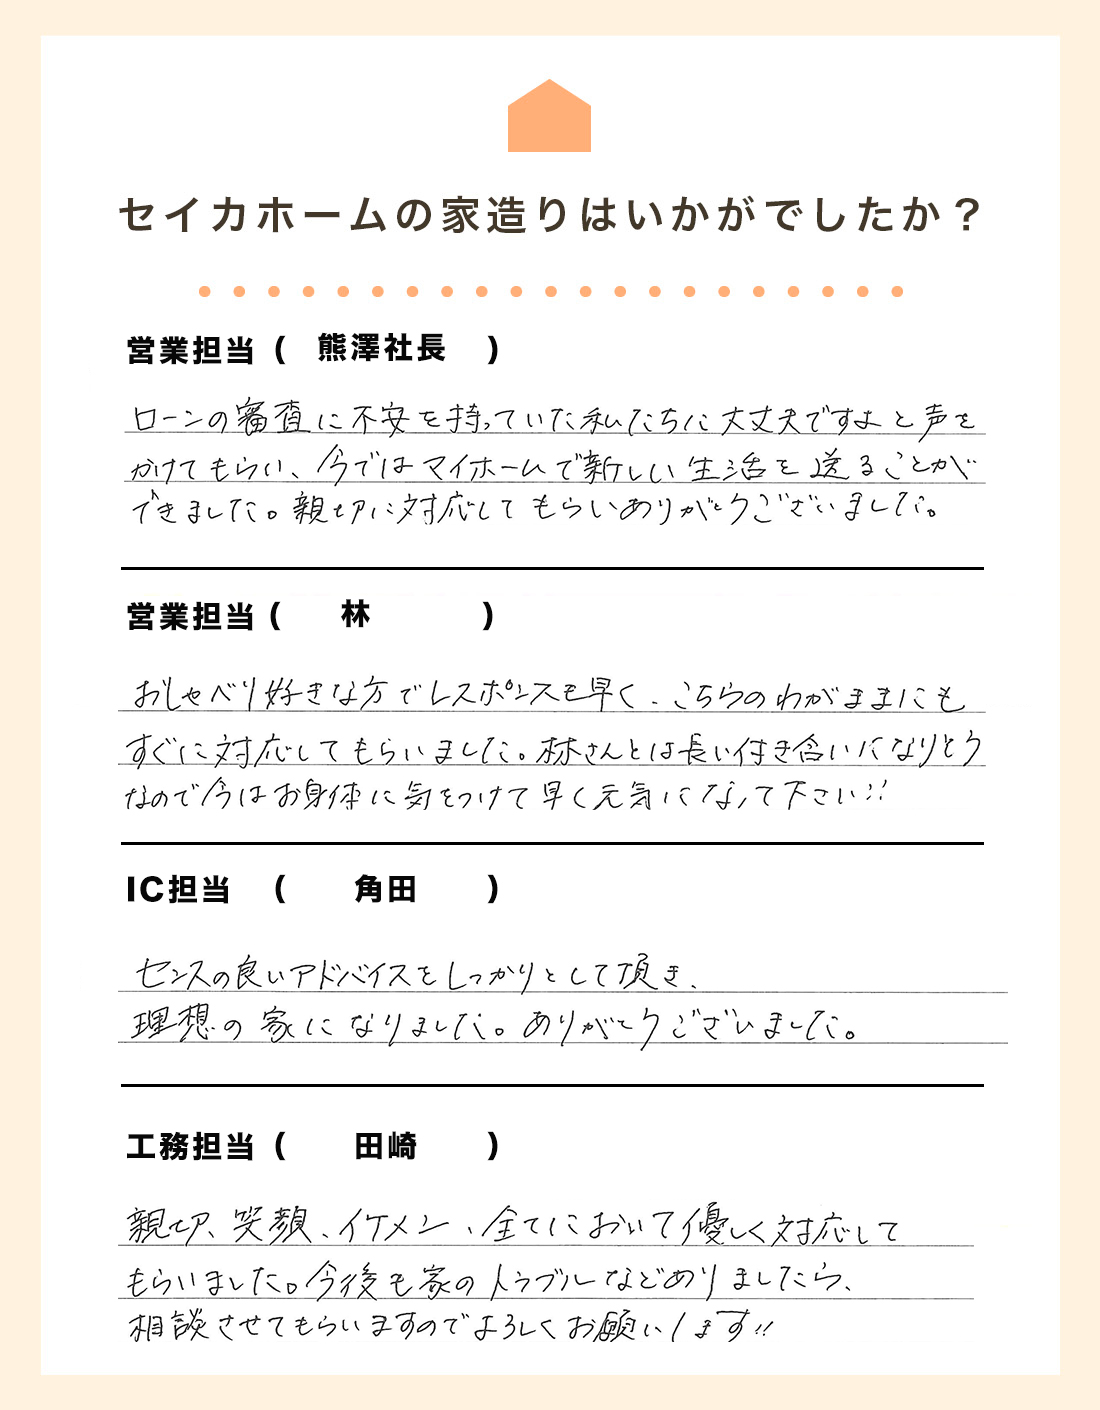 セイカホームの家造りはいかがでしたか？
営業担当 ( 熊澤社長 )
ローンの審査に不安を持っていた私たちに大丈夫ですよと声を
かけてもらい、今ではマイホームで新しい生活を送ることが
できました。親切に対応してもらいありがとうございました。
営業担当 ( 林 )
おしゃべり好きな方でレスポンスも早く、こちらのわがままにも
すぐに対応してもらいました。林さんとは長い付き合いになりそう
なので今はお身体に気をつけて早く元気になって下さい!!
IC担当 ( 角田 )
センスの良いアドバイスをしっかりとして頂き、
理想の家になりました。ありがとうございました。
工務担当 ( 田崎 )
親切、笑顔、イケメン、全てにおいて優しく対応して
もらいました。今後も家のトラブルなどありましたら、
相談させてもらいますのでよろしくお願いします!!